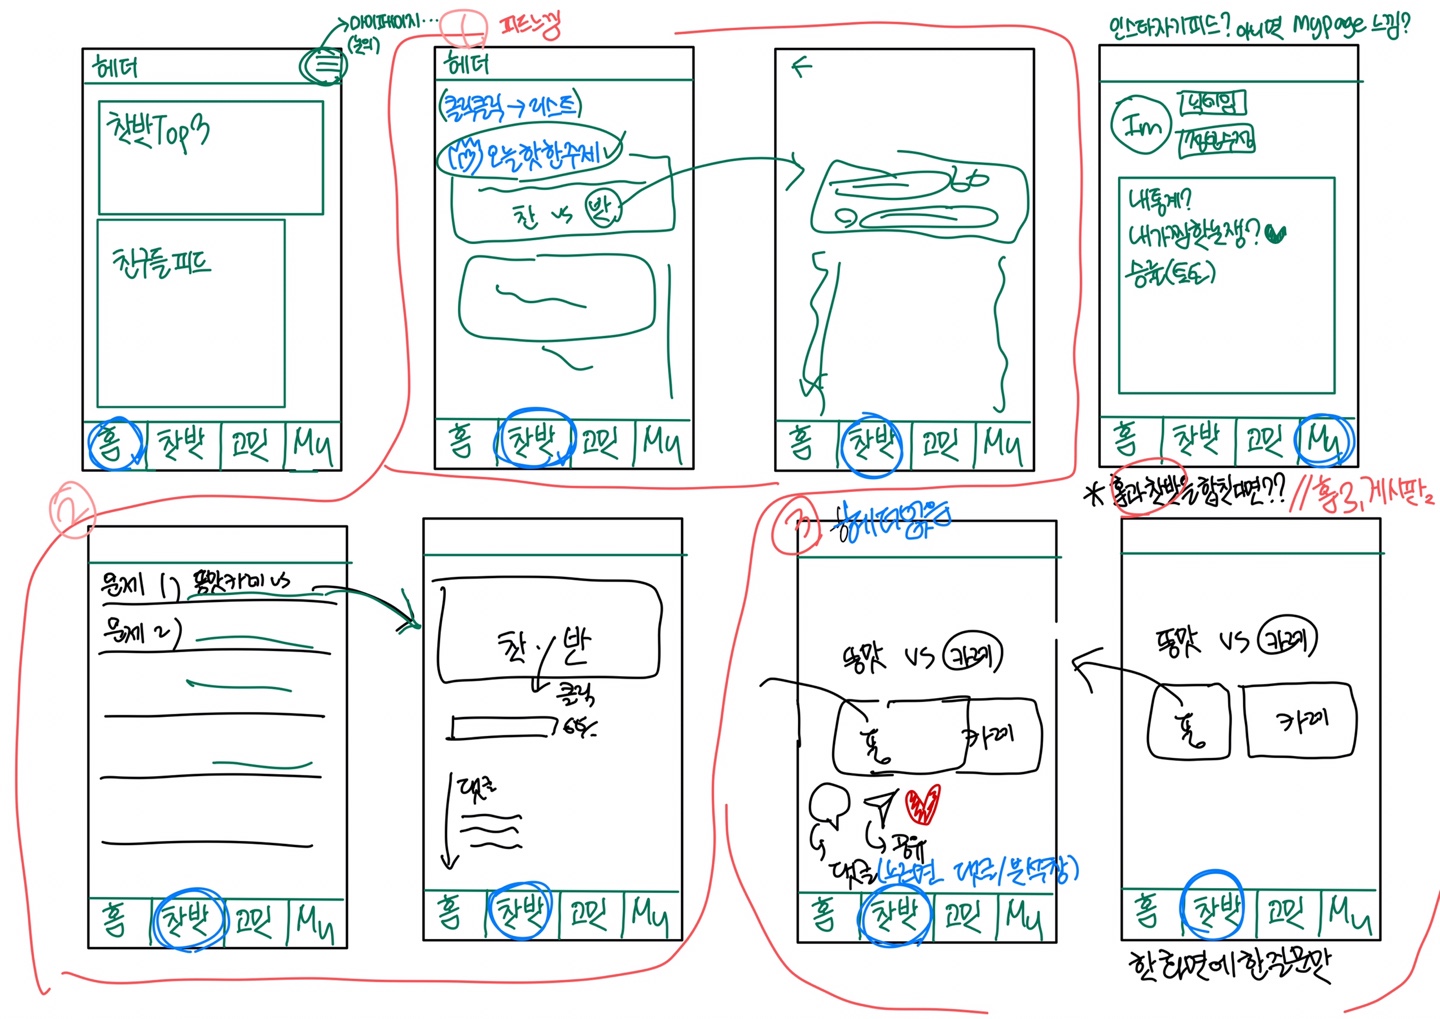 마이페이지...
(논의)
헤더
찬반Top3
친구들 피드
홈 찬반 고민 My
1 피드느낌
헤더
(클릭클릭 → 리스트)
오늘 핫한 주제
찬 vs 반
홈 찬반 고민 My
홈 찬반 고민 My
인스타자기피드? 아니면 Mypage 느낌?
Im
닉네임
내통계?
내가찜한논쟁?
승률(토론)
홈 찬반 고민 My
* 홈과 찬반을 합친다면?? // 홈3, 게시판2
2
문제 1) 똥맛카레 vs
문제 2)
홈 찬반 고민 My
찬 / 반
클릭
댓글
홈 찬반 고민 My
3
똥맛 vs 카레
똥
카레
공유
댓글(누르면 댓글/분석창)
홈 찬반 고민 My
똥맛 VS 카레
똥
카레
홈 찬반 고민 My
한 화면에 한 질문만